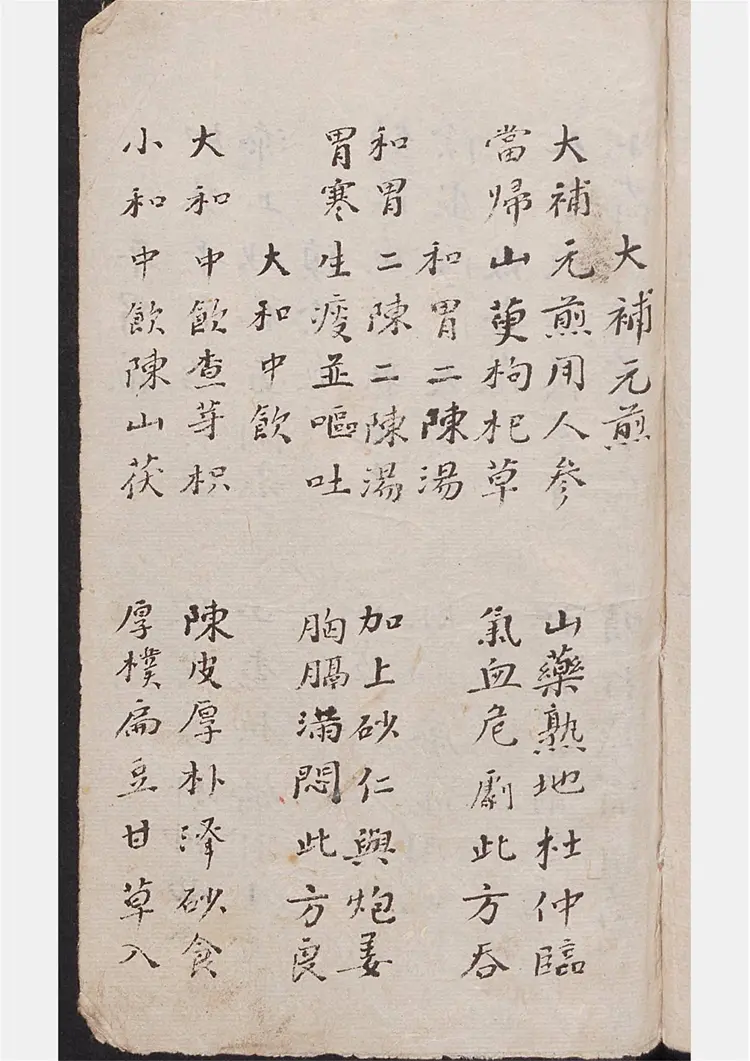 大補元煎
大補元煎用人參 山藥熟地杜仲臨
當歸山萸枸杞草 氣血危劇此方吞
和胃二陳湯
和胃二陳二陳湯 加上砂仁與炮姜
胃寒生痰並嘔吐 胸膈滿悶此方良
大和中飲
大和中飲查芽枳 陳皮厚朴澤砂食
小和中飲陳山茯 厚樸扁豆甘草入